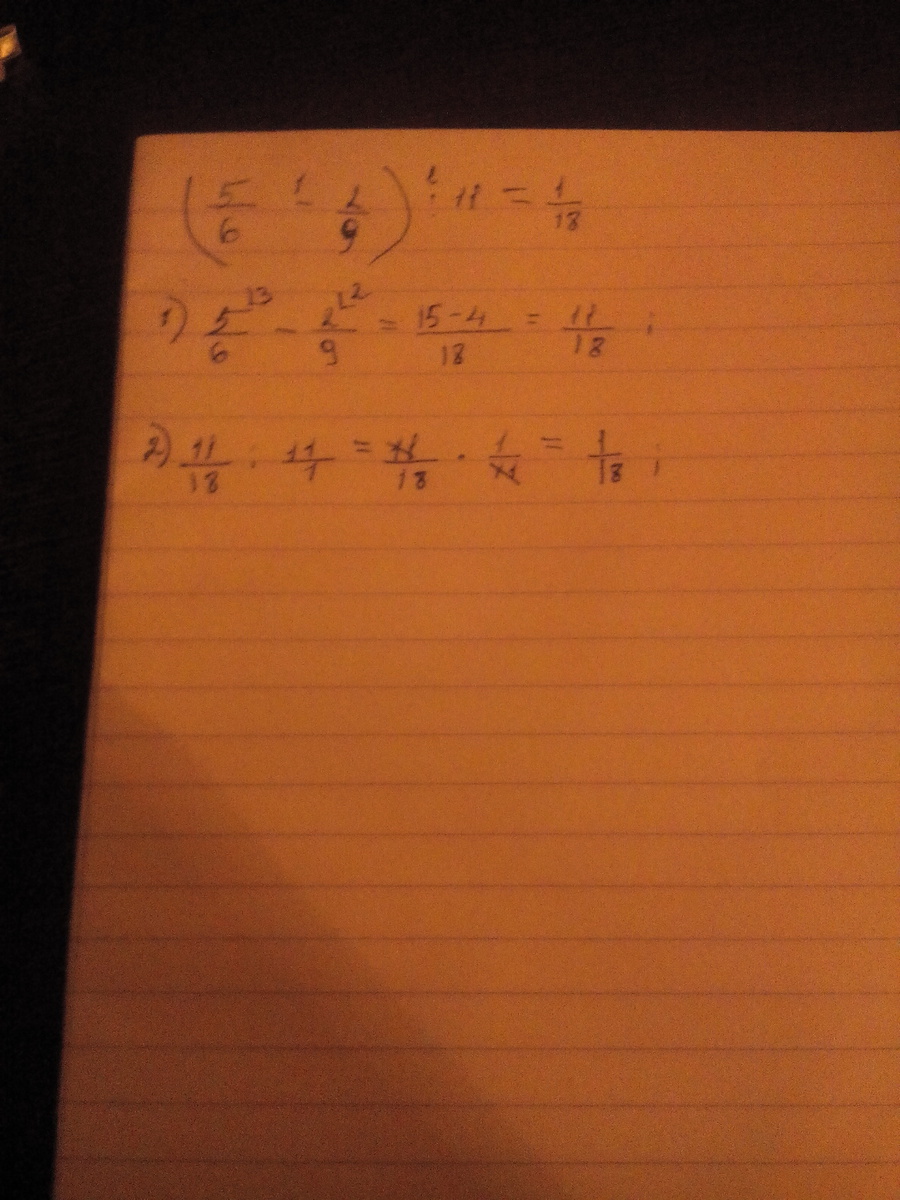 (5/6 -¹ 2/9) :² 11 = 1/18
1) 5/6 ⌊3 - 2/9 ⌊2 = 15-4/18 = 11/18 ;
2) 11/18 : 11/1 = 11/18 · 1/11 = 1/18 ;